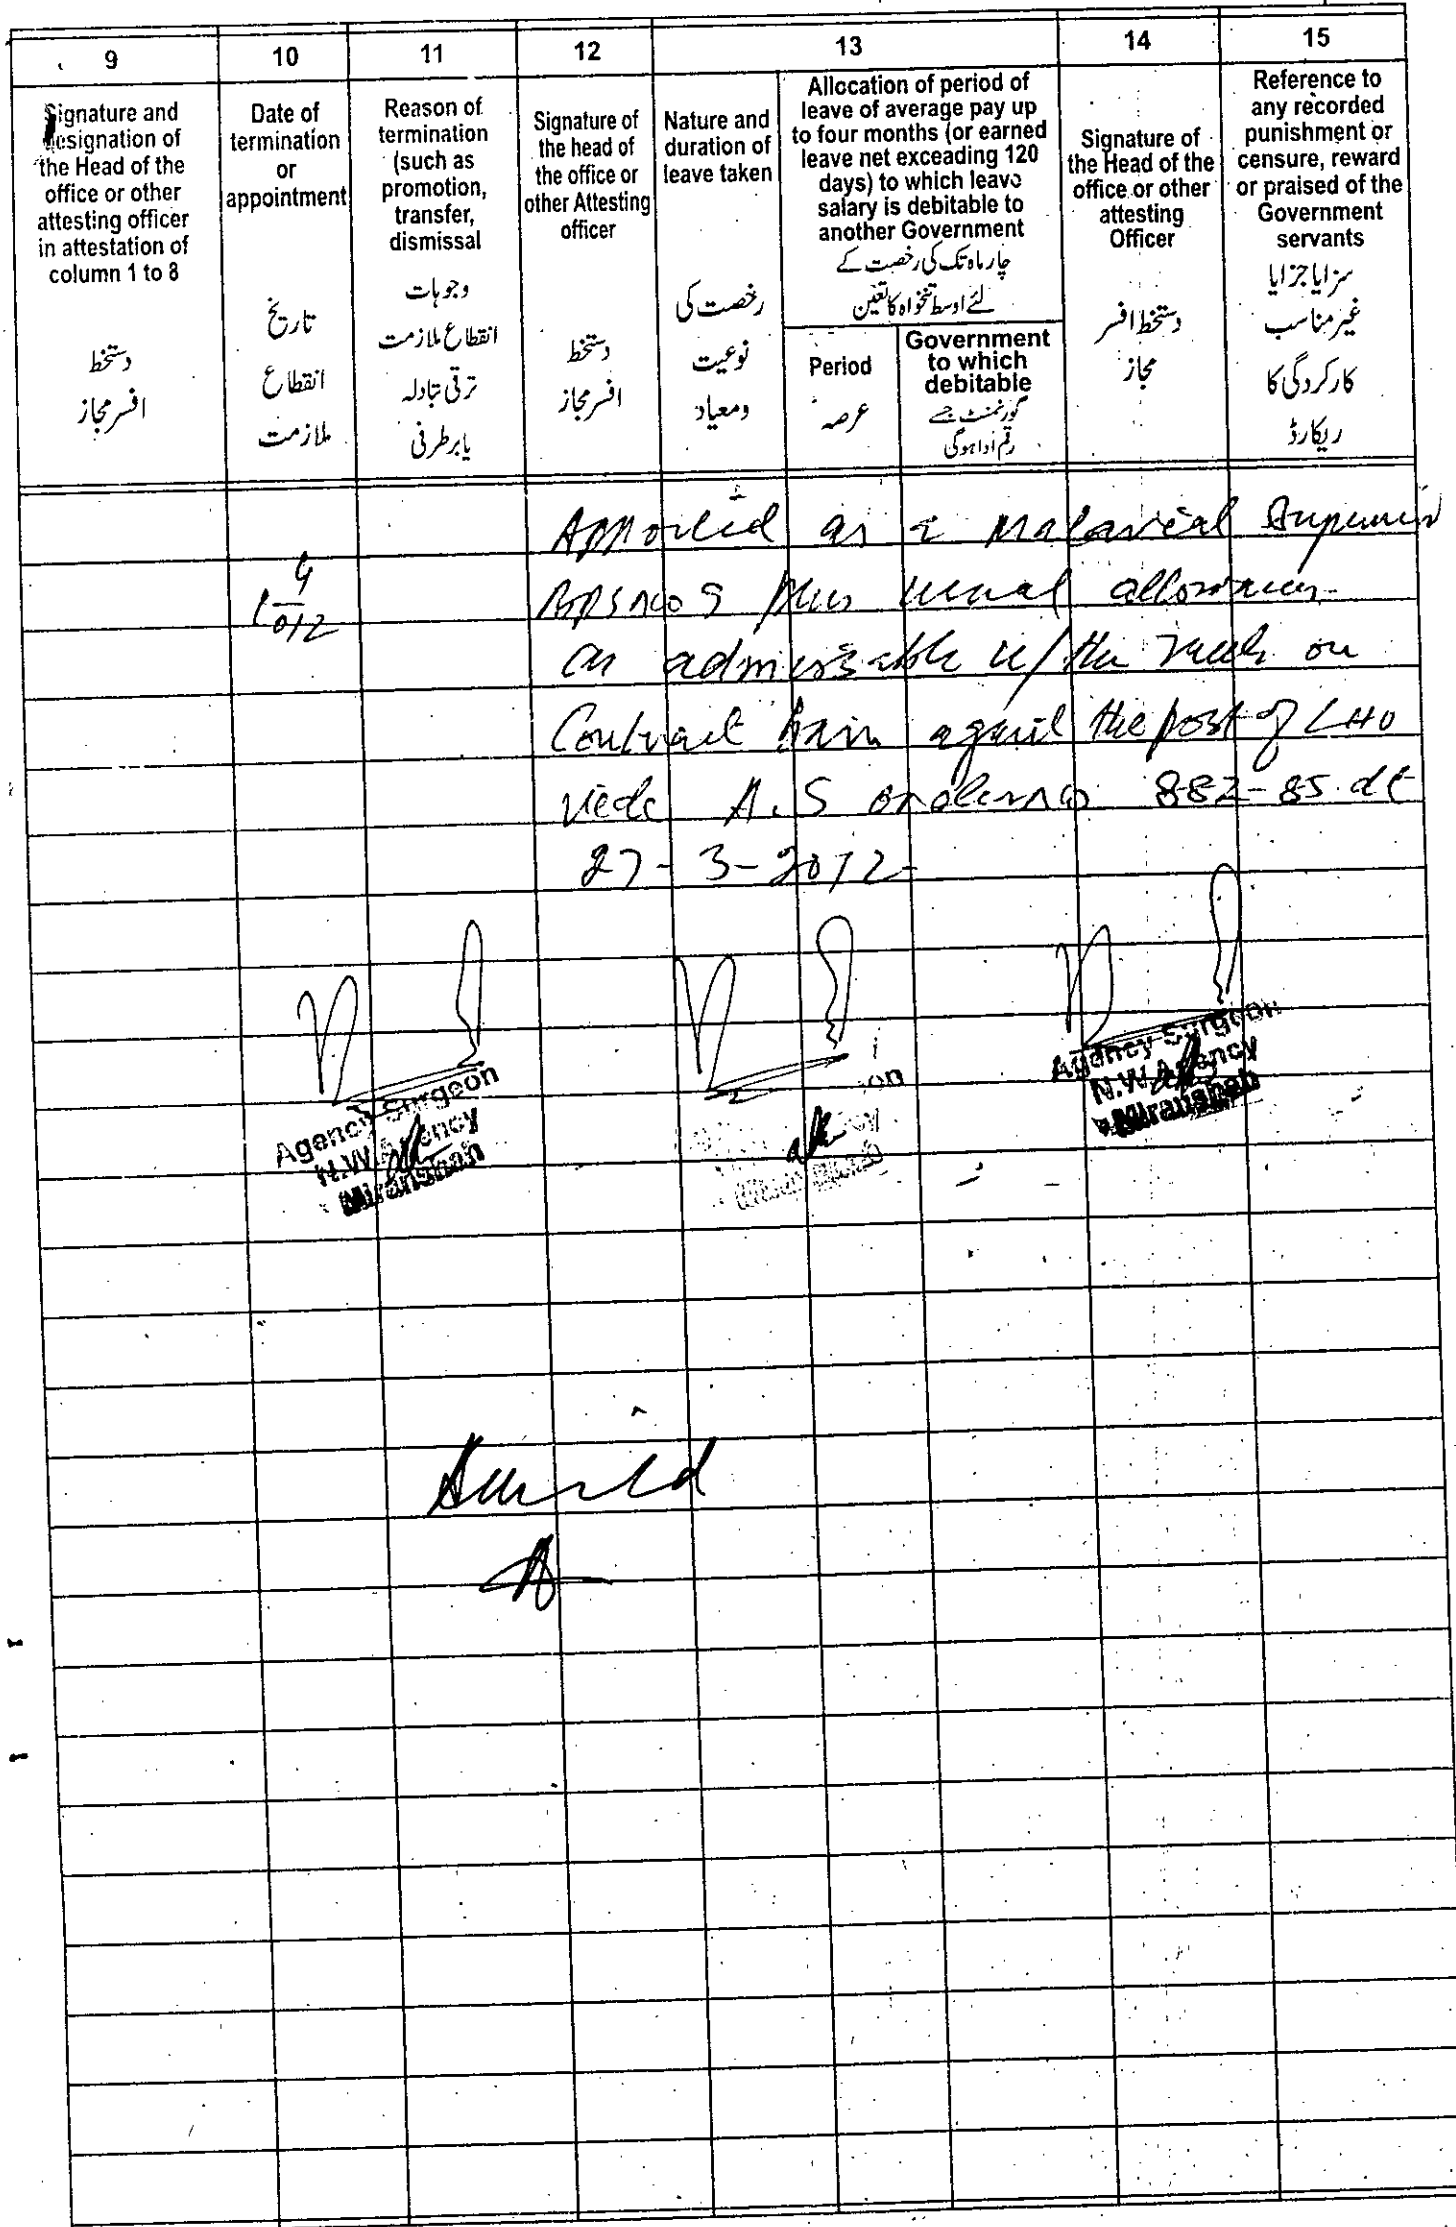 9 10 11 12 13 14 15
Signature and
designation of
the Head of the
office or other
attesting officer
in attestation of
column 1 to 8
دستخط
افسر مجاز
Date of
termination
or
appointment
تاریخ
انقطاع
ملازمت
Reason of
termination
(such as
promotion,
transfer,
dismissal
وجوہات
انقطاع ملازمت
ترقی تبادلہ
یا برطرفی
Signature of
the head of
the office or
other Attesting
officer
دستخط
افسر مجاز
Nature and
duration of
leave taken
رخصت کی
نوعیت
ومعیاد
Allocation of period of
leave of average pay up
to four months (or earned
leave net exceading 120
days) to which leave
salary is debitable to
another Government
چار ماہ تک کی رخصت کے
لئے اوسط تنخواہ کا تعین
Period
عرصہ
Government
to which
debitable
گورنمنٹ جسے
رقم ادا ہوگی
Signature of
the Head of the
office or other
attesting
Officer
دستخط افسر
مجاز
Reference to
any recorded
punishment or
censure, reward
or praised of the
Government
servants
سزایا جزایا
غیر مناسب
کارکردگی کا
ریکارڈ
as a Malarial
plus usual allowances
as admissable u/the rules on
Contract the post of LHV
vide A.S 882-85 dt
27-3-2012
Agency Surgeon
N.W. Agency
Miranshah
Agency Surgeon
N.W. Agency
Miranshah